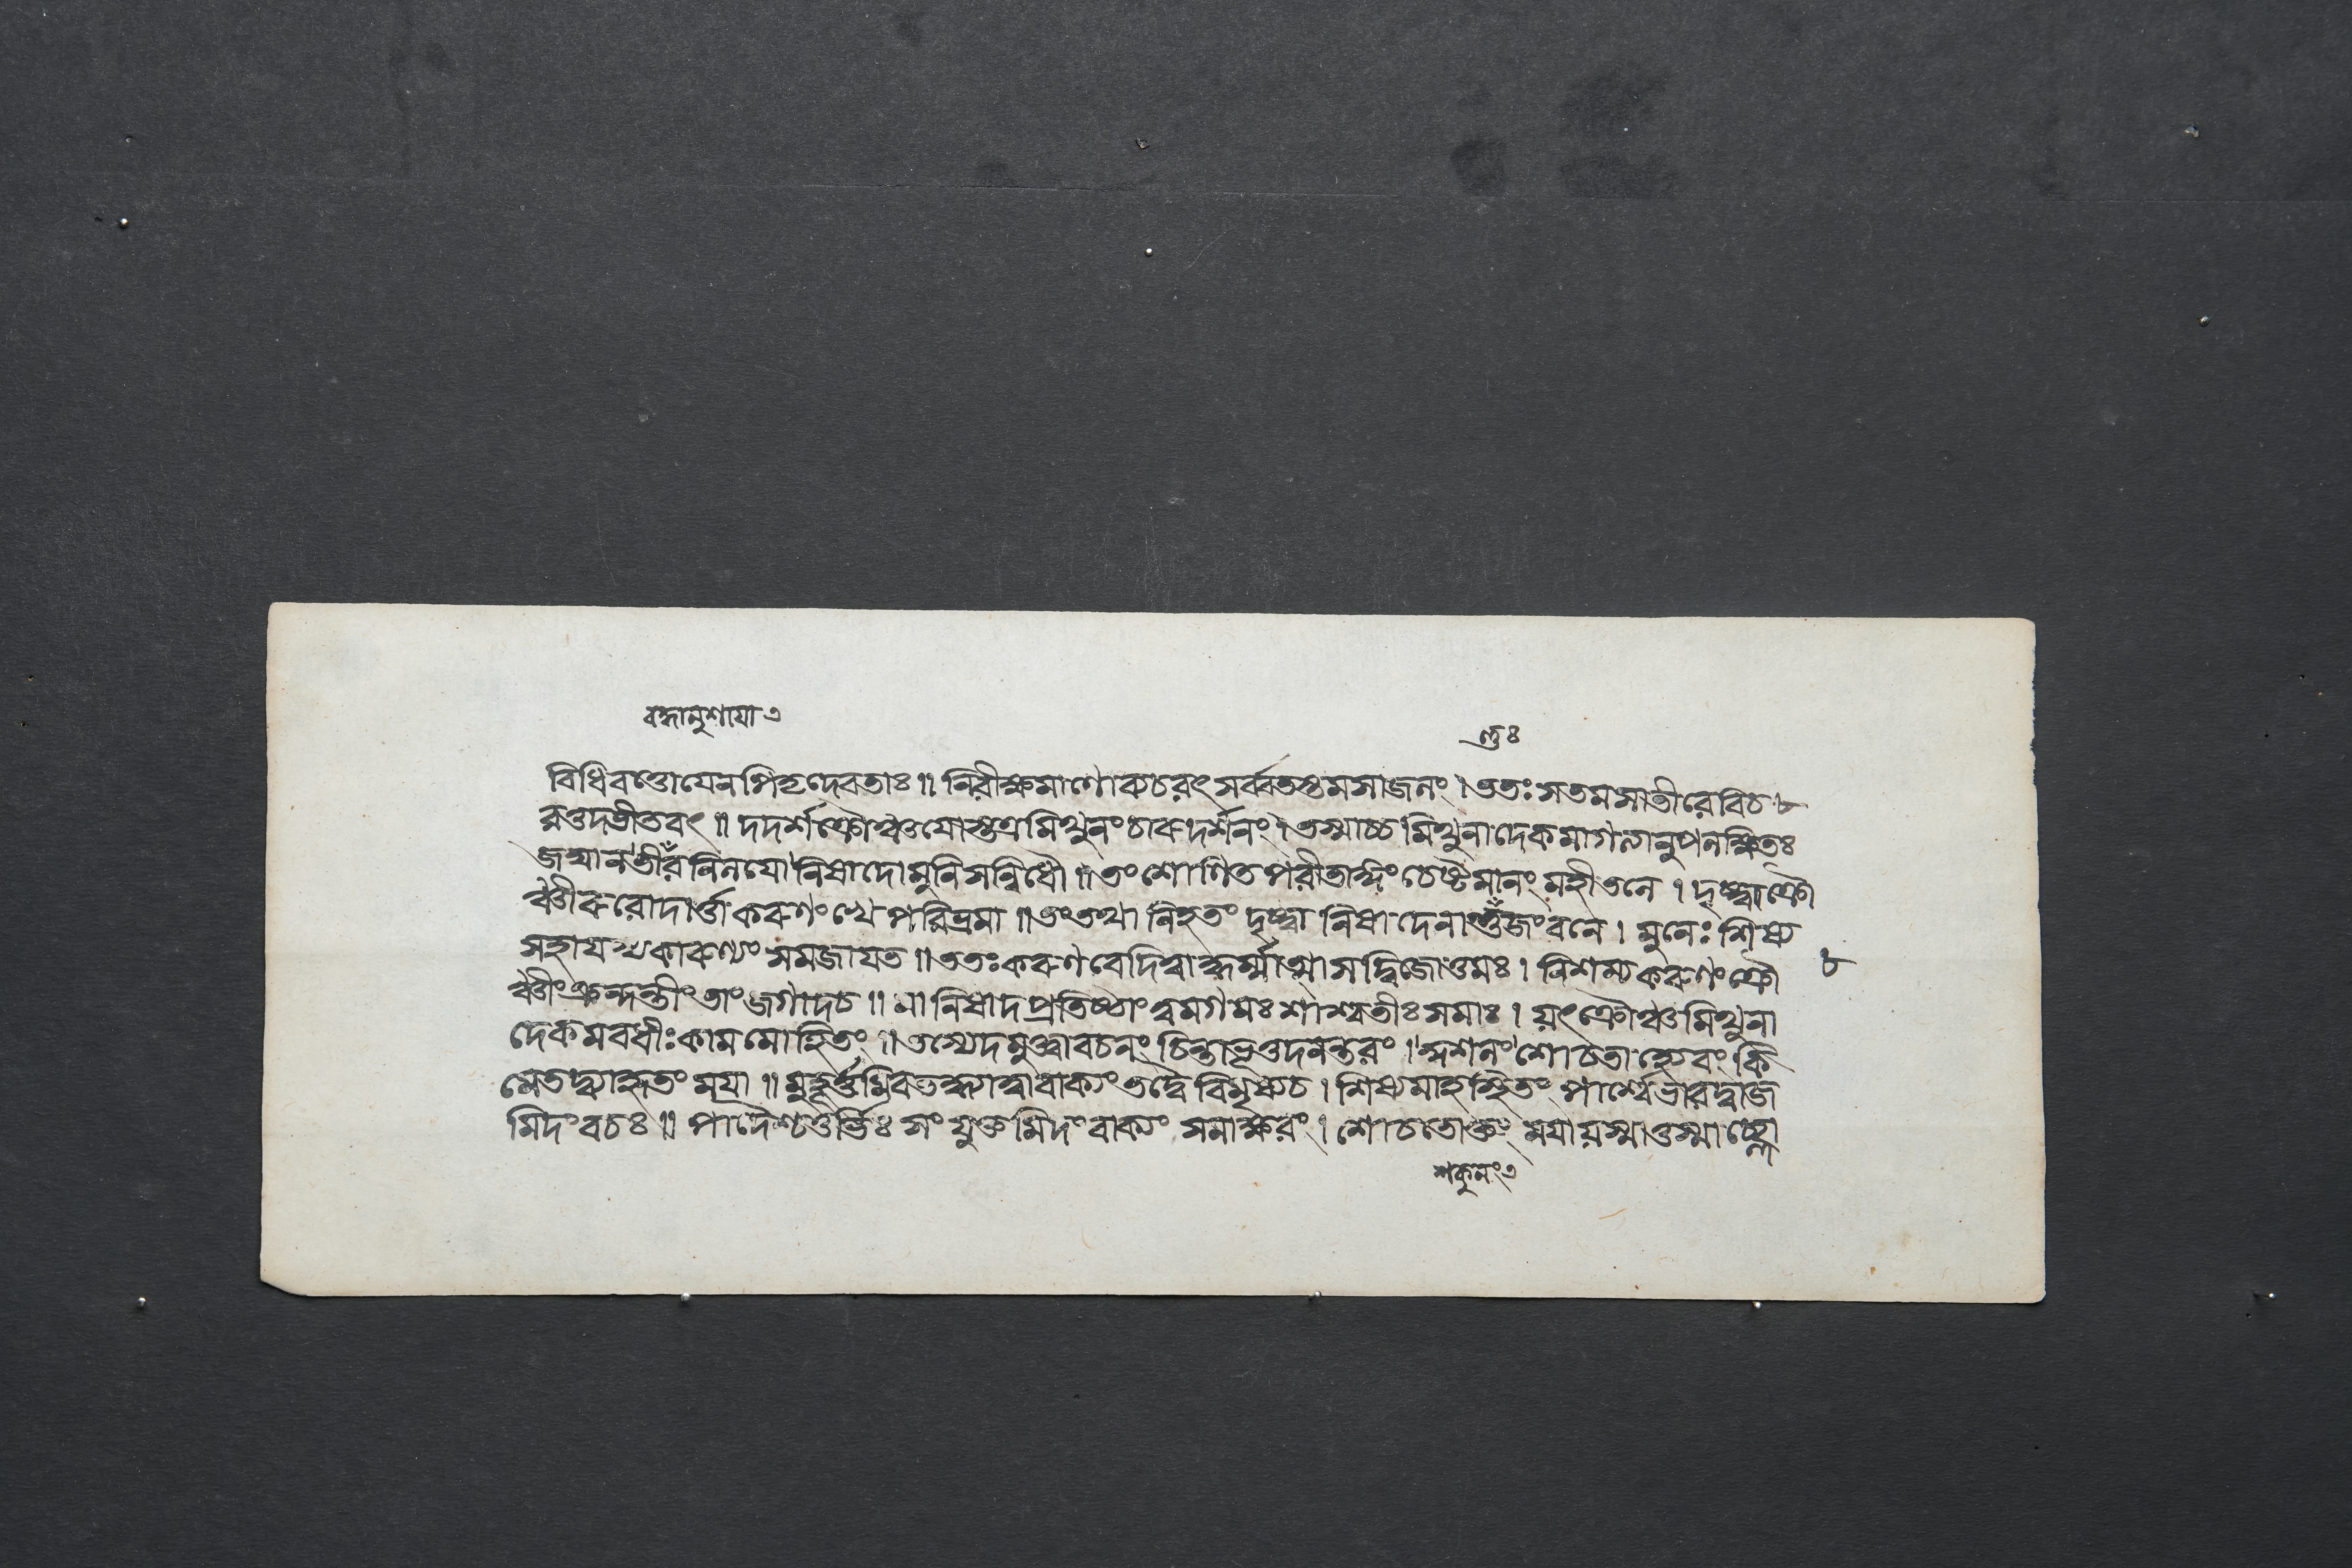 বদ্ধানুশাযা এ
ণ্ডঃ
বিধিবত্তোযেনপিতৃদেবতাঃ ॥ নিরীক্ষমাণোব্যচরৎ সর্ব্বতস্তমসাজনং । ততঃ সতমসাতীরেবিচ
রন্তদভীতবৎ ॥ দদর্শক্রৌঞ্চযোস্তত্রমিথুনং চারুদর্শনং । তস্মাচ্চমিথুনাদেকমাগত্যানুপলক্ষিতঃ
জঘান নিষাদোমুনিসন্নিধৌ ॥ তং শোণিতপরীতাঙ্গং চেষ্টমানং মহীতলে । দৃষ্ট্বাক্রৌ
ঞ্চীরুরোদার্ত্তাকরুণং খে পরিভ্রমা ॥ তং তথা নিহতং দৃষ্ট্বা নিষাদেনাণ্ডজং বনে । মুনেঃ শিষ্য
সহাযস্যকারুণ্যং সমজাযত ॥ ততঃ করুণবেদিত্বাদ্ধর্ম্মাত্মাসদ্বিজোত্তমঃ । নিশম্যকরুণং ক্রৌ
৮
ঞ্চীংক্রন্দন্তীং তাং জগাদচ ॥ মা নিষাদপ্রতিষ্ঠাং ত্বমগমঃ শাশ্বতীঃ সমাঃ । যৎক্রৌঞ্চমিথুনা
দেকমবধীঃ কামমোহিতং ॥ তস্যেদমুক্ত্বাবচনং চিন্তাভূত্তদনন্তরং । শোচতা হ্যেবং কি
মেতদ্ব্যাহৃতং মযা ॥ মুহূর্ত্তমিবতদ্ধ্যাত্বাবাক্যং তদ্বৈ বিমৃষ্যচ । শিষ্যমাহস্থিতং পার্শ্বেভারদ্বাজ
মিদং বচঃ ॥ পাদৈশ্চতুর্ভিঃ সং যুক্তমিদং বাক্যং সমাক্ষরং । শোচতোক্তং মযাযস্মাত্তস্মাচ্ছ্লো
শকুনং এ